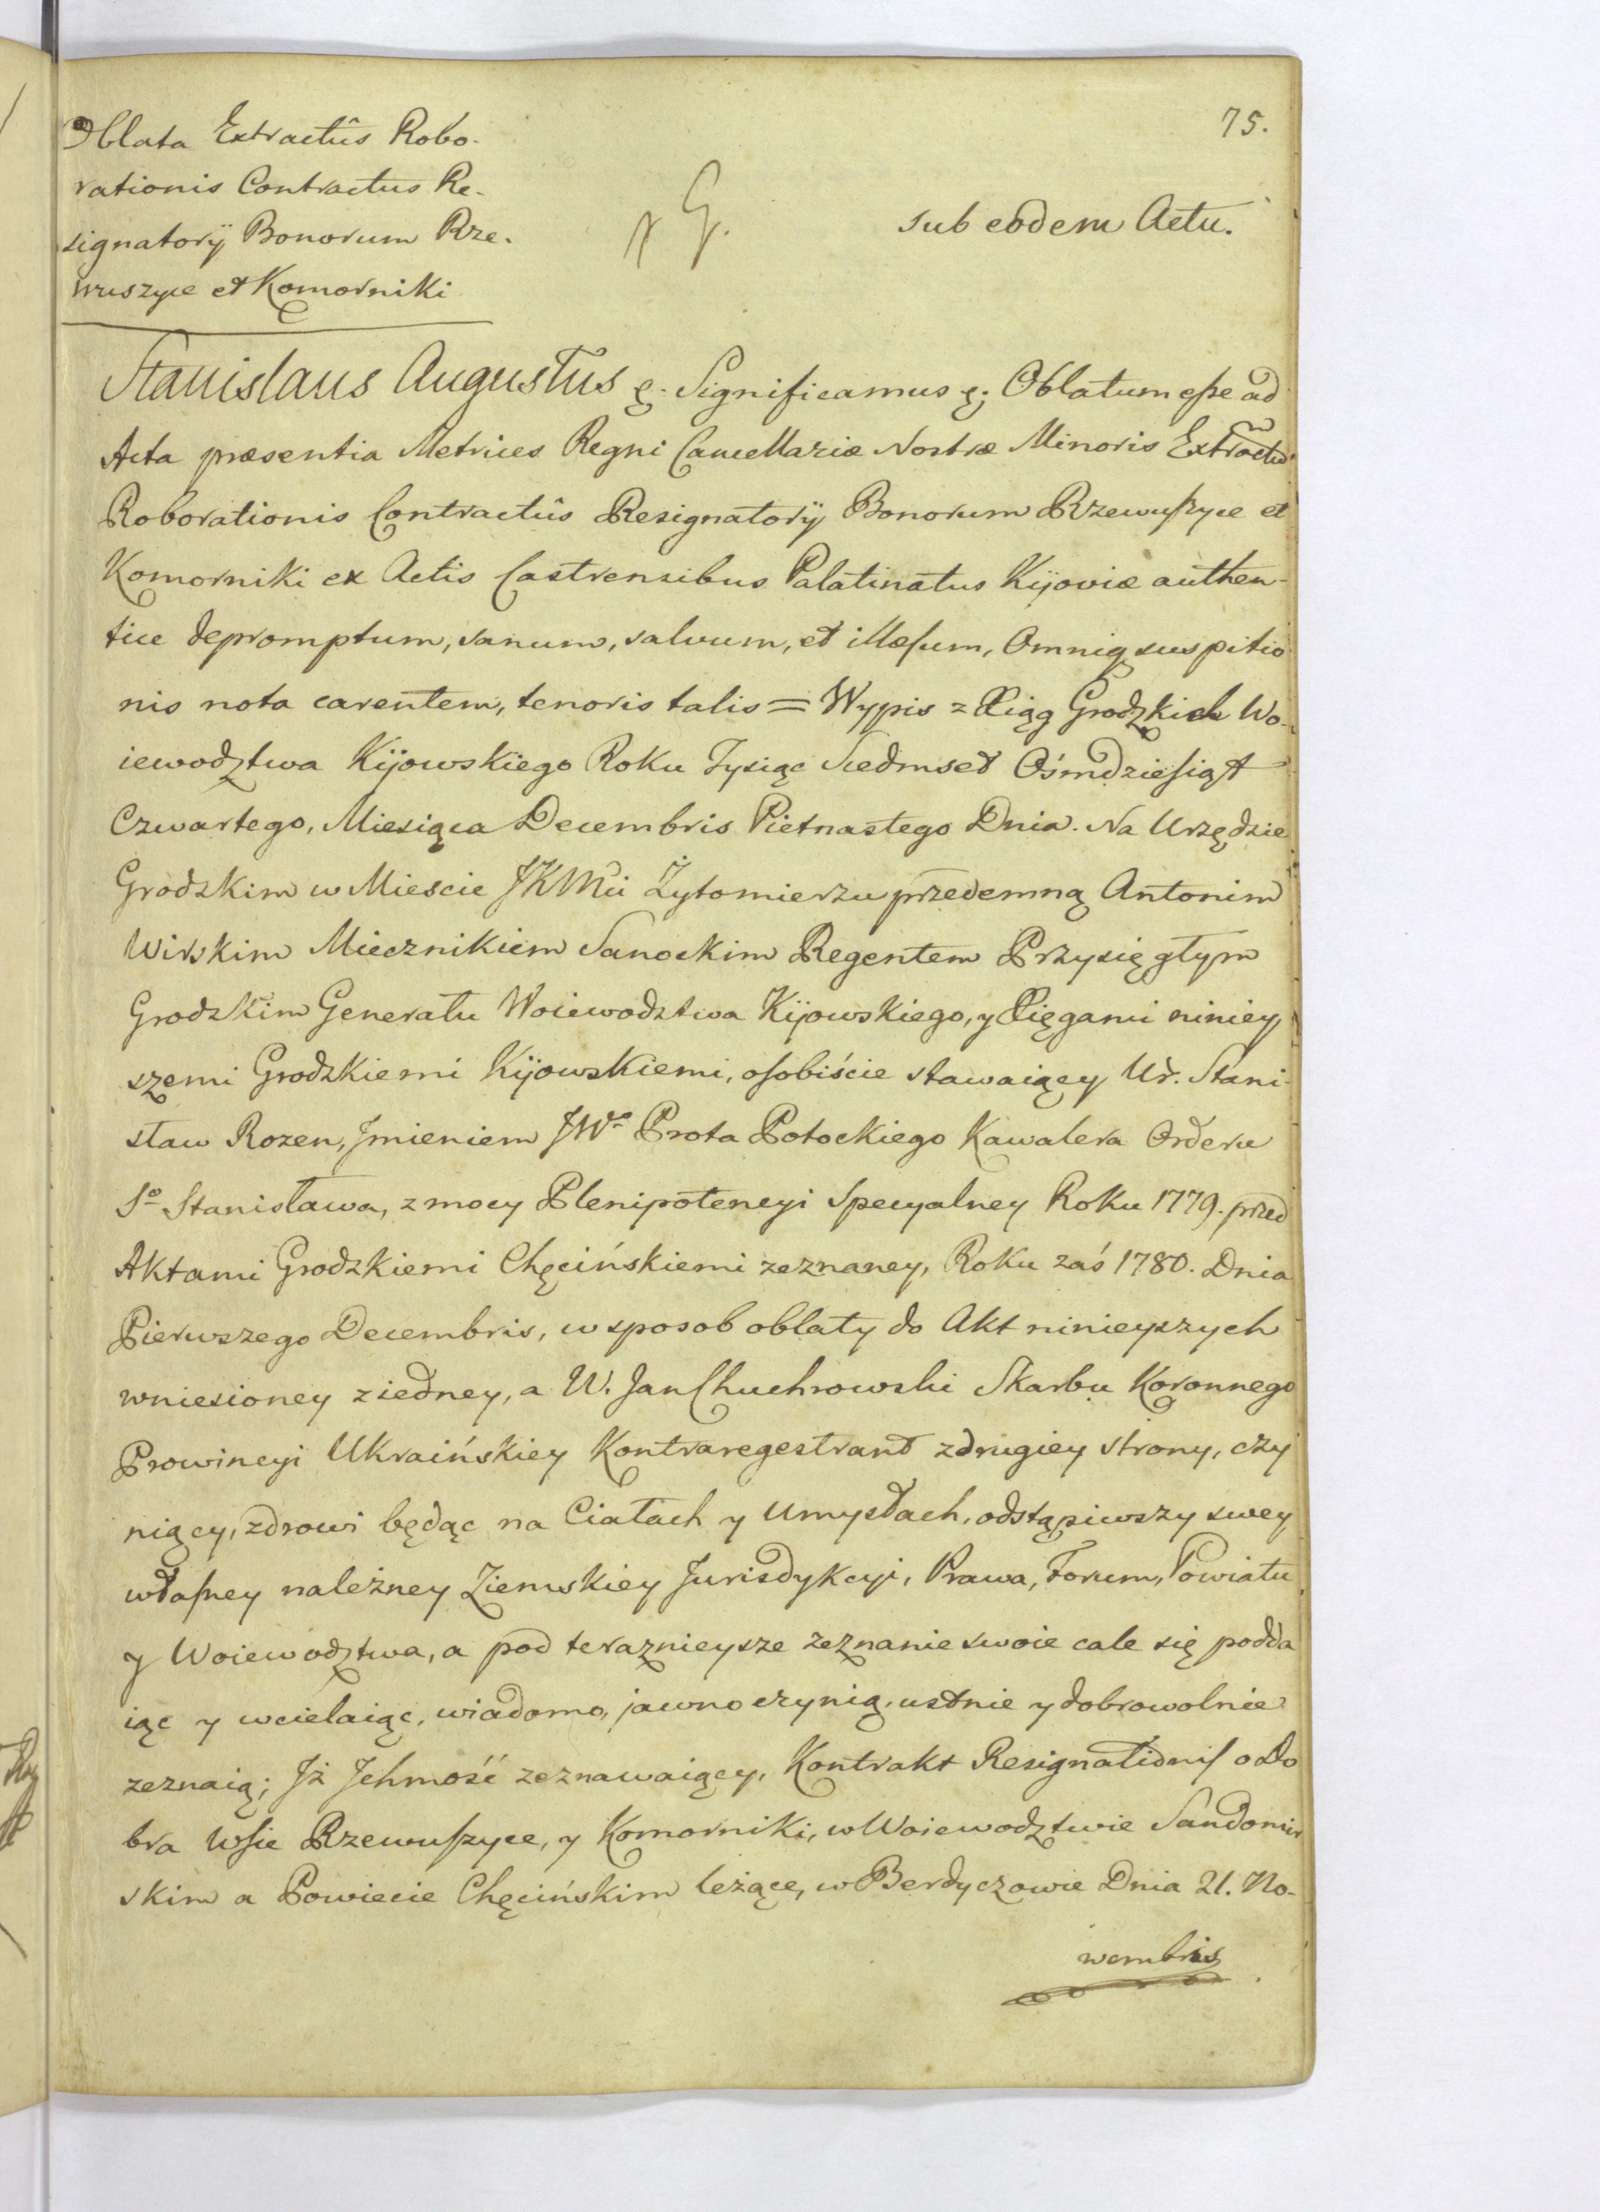 75.
Oblata Extractûs Robo-
rationis Contractus Re-
signatorÿ Bonorum Rze-
wuszyce et Komorniki
sub eodem Actu.
Stanislaus Augustus &. Significamus &; Oblatum esse ad
Acta præsentia Metrices Regni Cancellariæ Nostræ Minoris Extractum
Roborationis Contractûs Resignatorÿ Bonorum Rzewuszyce et
Komorniki ex Actis Castrensibus Palatinatus Kijoviæ authen-
tice depromptum, sanum, salvum, et illæsum, Omniq suspitio
nis nota carentem, tenoris talis = Wypis z Xiąg Grodzkich Wo-
iewodztwa Kijowskiego Roku Tysiąc Siedmset Ośmdziesiąt
Czwartego, Miesiąca Decembris Pietnastego Dnia. Na Urzędzie
Grodzkim w Miescie JKMci Żytomierzu przedemną Antonim
Wirskim Miecznikiem Sanockim Regentem Przysięgłym
Grodzkim Generału Woiewodztwa Kijowskiego, y Xięgami niniey
szemi Grodzkiemi Kijowskiemi, osobiście stawaiący Ur. Stani-
sław Rozen, Jmieniem JWo Prota Potockiego Kawalera Orderu
So Stanisława, z mocy Plenipotencyi Specyalney Roku 1779. przed
Aktami Grodzkiemi Chęcińskiemi zeznaney, Roku zaś 1780. Dnia
Pierwszego Decembris, w sposob oblaty do Akt ninieyszych
wniesioney z iedney, a W. Jan Chuchrowski Skarbu Koronnego
Prowincyi Ukraińskiey Kontraregestrant z drugiey strony, czy
niący, zdrowi będąc na Ciałach y Umysłach, odstąpiwszy swey
własney należney Ziemskiey Jurisdykcyi, Prawa, Forum, Powiatu
y Woiewodztwa, a pod teraznieysze zeznanie swoie cale się podda
iąc y wcielaiąc, wiadomo, jawno czynią, ustnie y dobrowolnie
zeznaią; Jż Jchmość zeznawaiący, Kontrakt Resignationis o Do
bra Wsie Rzewuszyce, y Komorniki, w Woiewodztwie Sandomir
skim a Powiecie Chęcińskim leżące, w Berdyczowie Dnia 21. No-
wembris